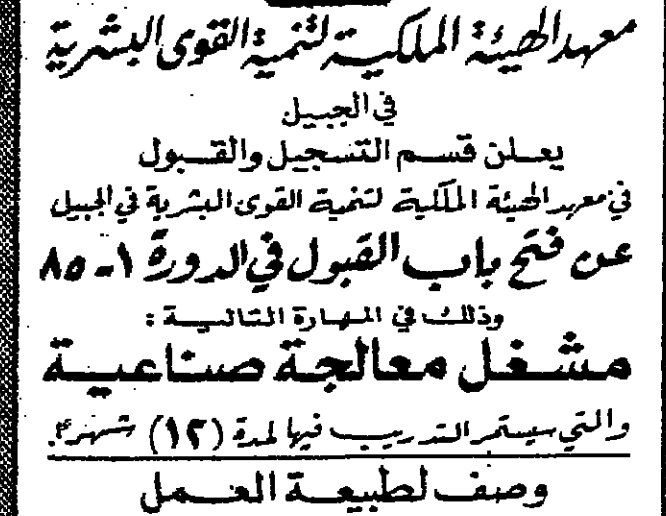 معهد الهيئة الملكية لتنمية القوى البشرية
في الجبيل
يعلن قسم التسجيل والقبول
في معهد الهيئة الملكية لتنمية القوى البشرية في الجبيل
عن فتح باب القبول في الدورة ١ - ٨٥
وذلك في المهارة التالية :
مشغل معالجة صناعية
والتي سيستمر التدريب فيها لمدة (١٢) شهراً.
وصف لطبيعة العمل